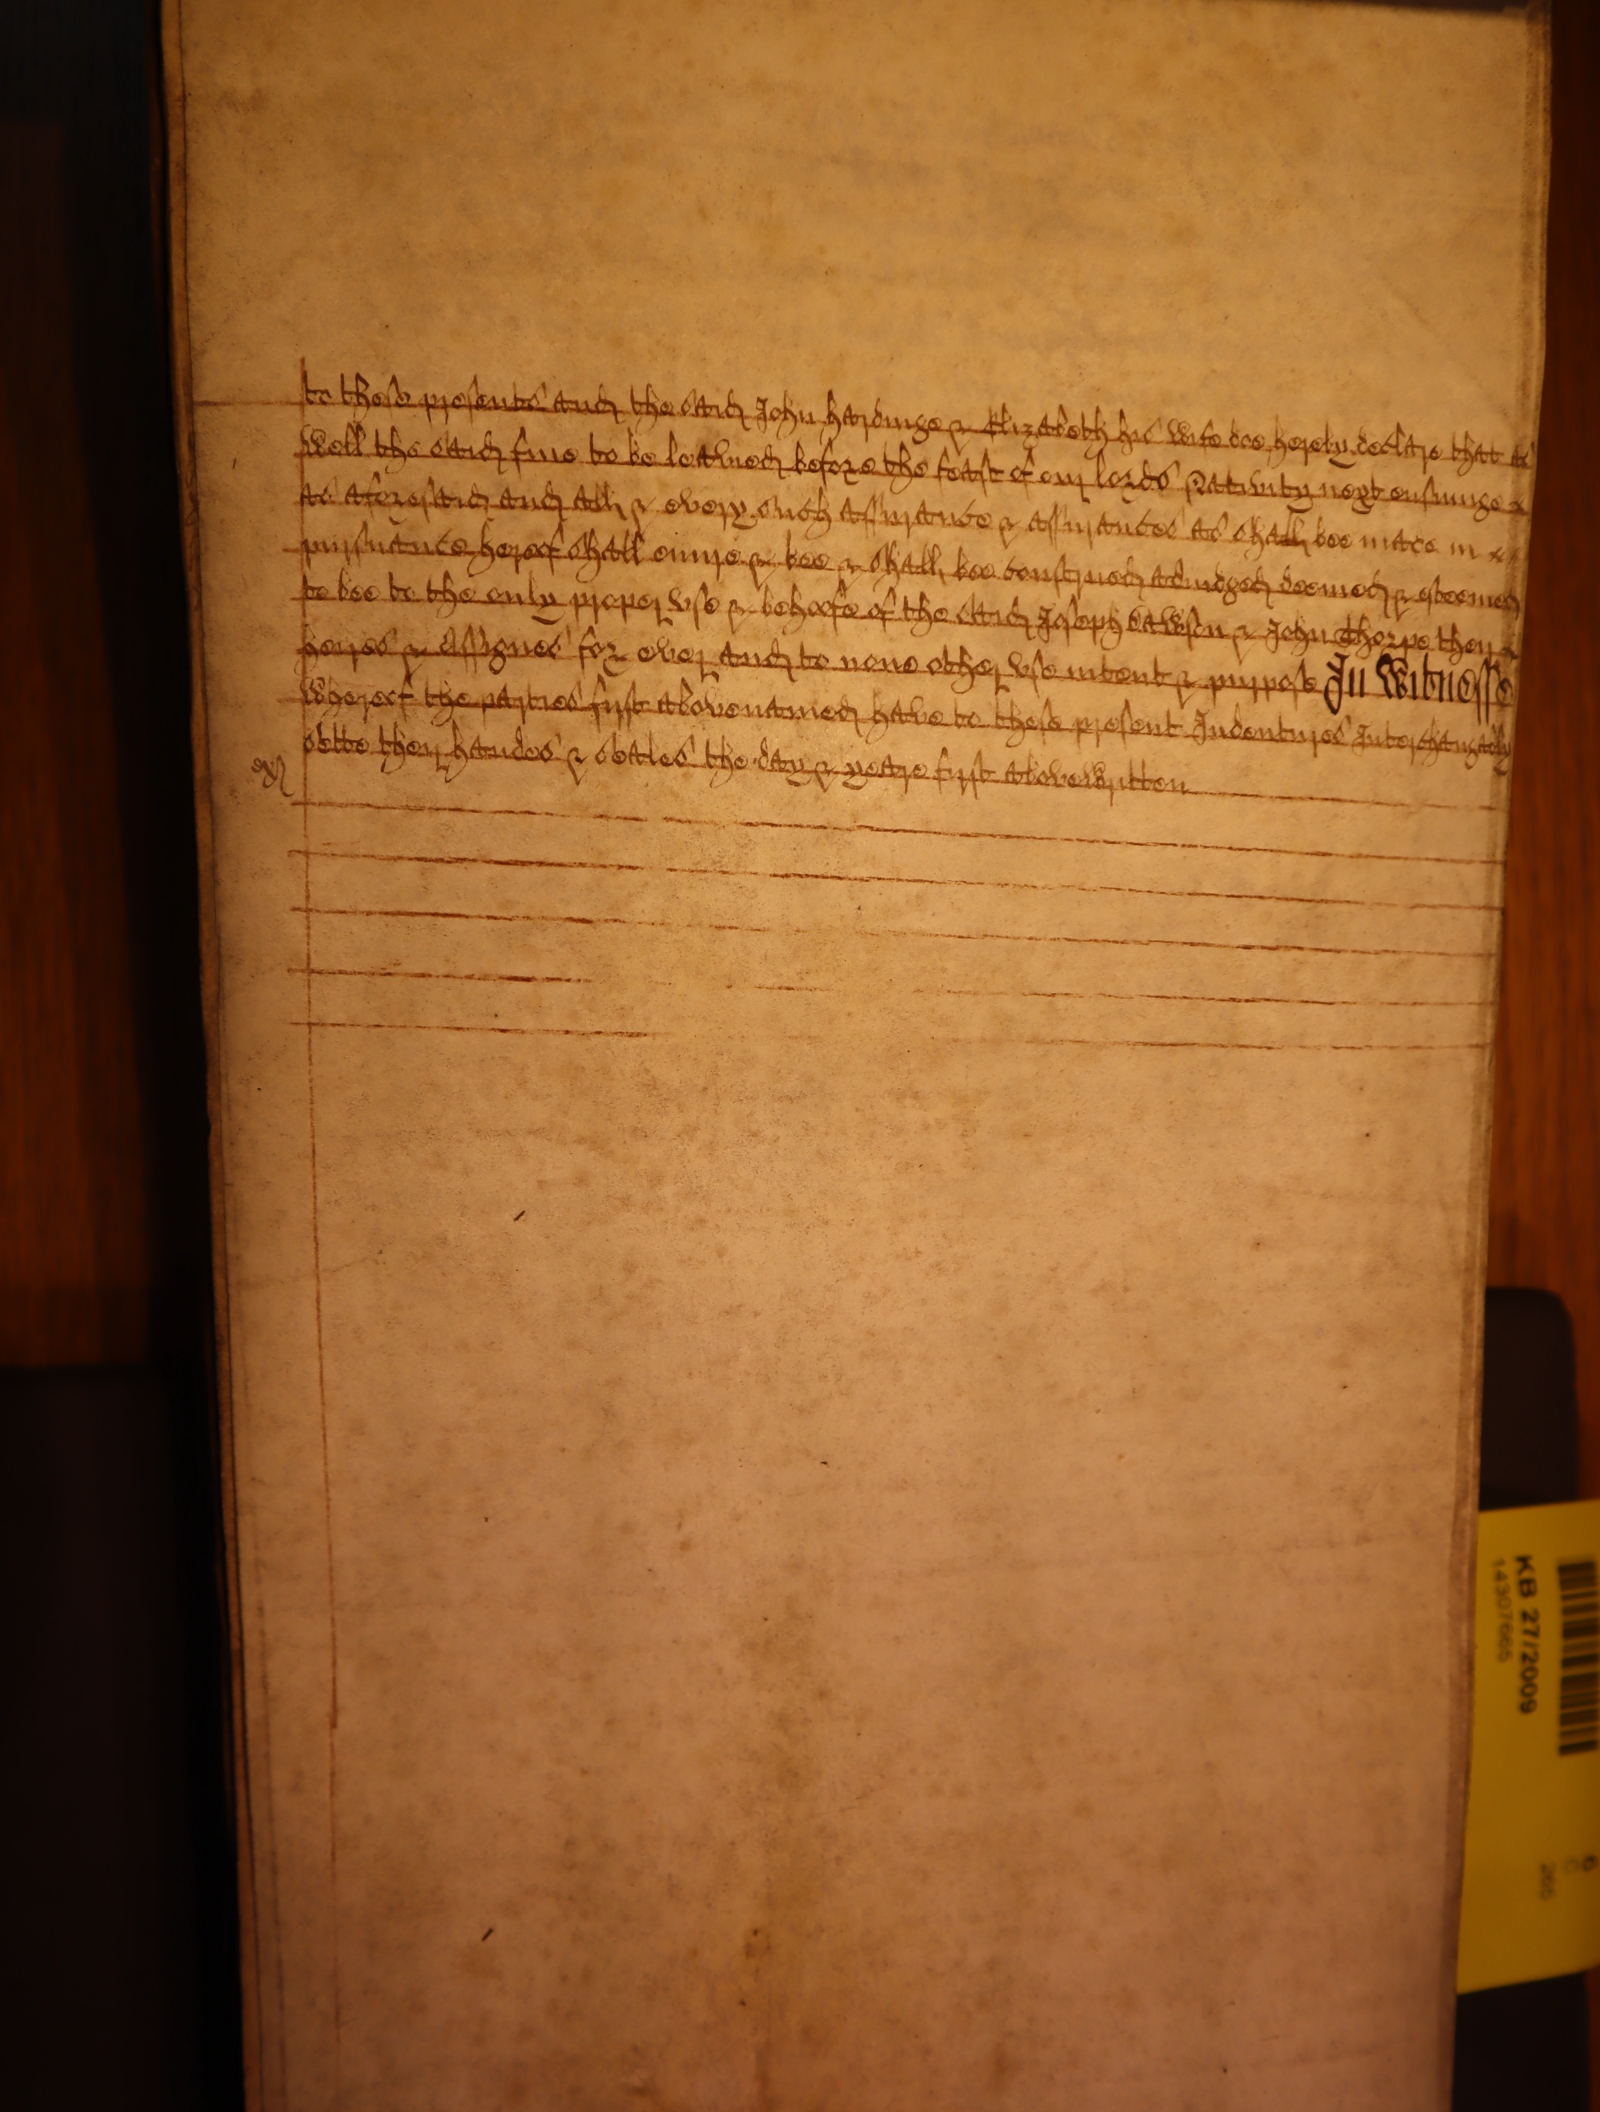 to these presents and the said John hardinge & Elizabeth his wife doe hereby declare that as
well the said fine to be leavued before the feast of our lords Nativity next ensuinge &
as aforesaid and all & every such assurance & assurances as shall bee made in
pursuance hereof shall enure & bee & shall bee construed adiudged deemed & esteemed
to bee to the only proper vse & behoofe of the said Joseph Dawson & John Thorpe their
heires & Assignes for ever and to none other vse intent & purpose In Witnesse
whereof the parties first abovenamed have to these present Indentures Interchangably
sette their handes & seales the day & yeare first abovewritten
ex
KB 27/2009
14307665